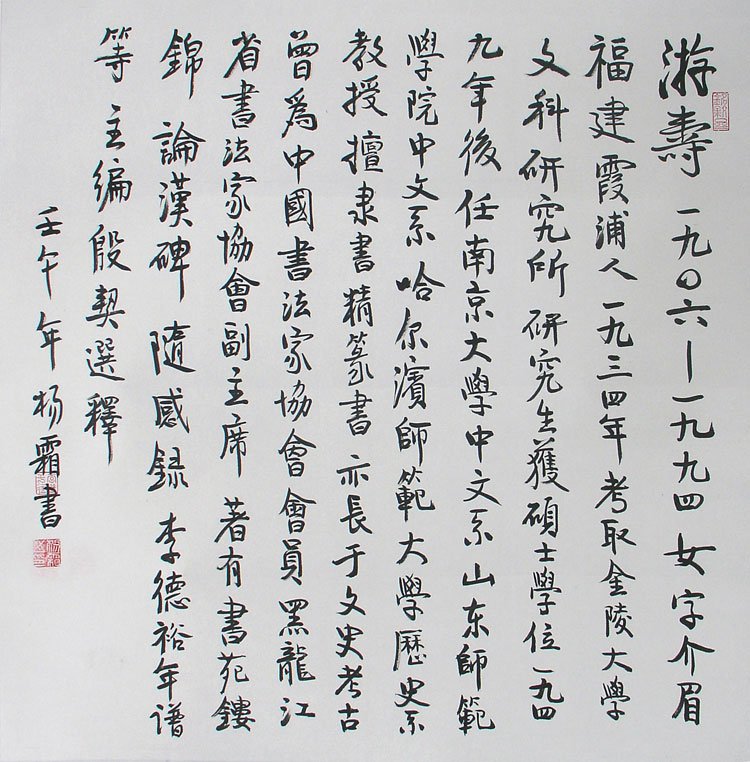 游壽 一九〇六—一九九四 女 字介眉
福建霞浦人 一九三四年考取金陵大學
文科研究所 研究生獲碩士學位 一九四
九年後任南京大學中文系 山东師範
學院中文系 哈尔濱師範大學歷史系
教授 擅隶書 精篆書 亦長于文史考古
曾爲中國書法家協會會員 黑龍江
省書法家協會副主席 著有書苑鏤
錦 論漢碑 隨感録 李德裕年谱
等 主编殷契選釋
壬午年 杨霜書